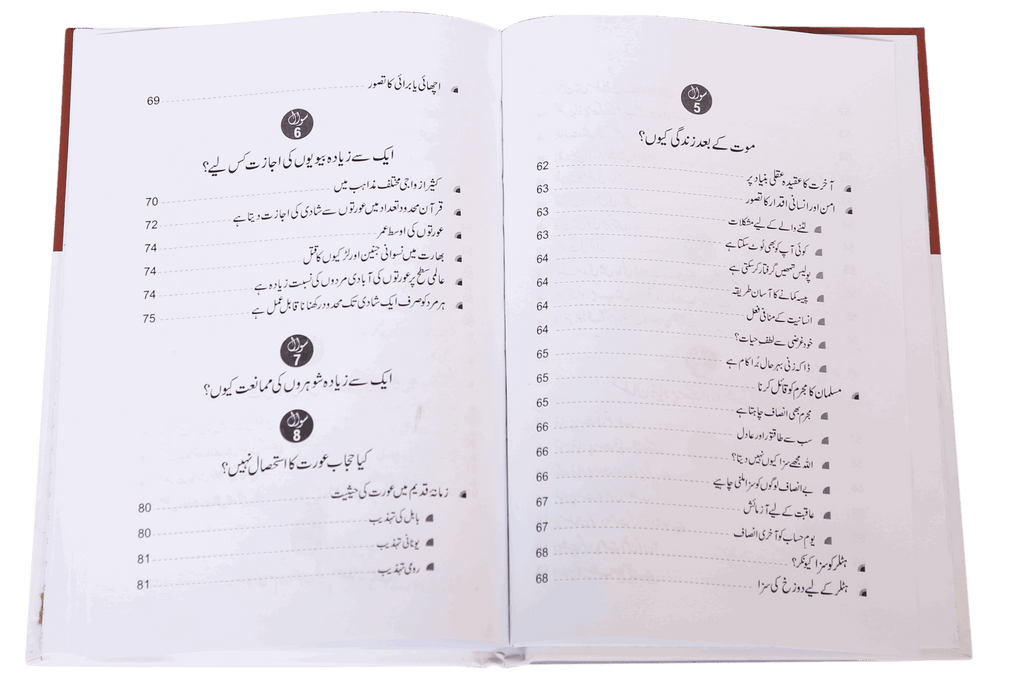 سوال
5
موت کے بعد زندگی کیوں؟
آخرت کا عقیدہ عقلی بنیاد پر 62
امن اور انسانی اقدار کا تصور 63
لٹنے والے کے لیے مشکلات 63
کوئی آپ کو بھی لوٹ سکتا ہے 63
پولیس تمھیں گرفتار کر سکتی ہے 64
پیسہ کمانے کا آسان طریقہ 64
انسانیت کے منافی فعل 64
خود غرضی سے لطفِ حیات؟ 64
ڈاکہ زنی بہر حال بُرا کام ہے 65
مسلمان کا مجرم کو قائل کرنا 65
مجرم بھی انصاف چاہتا ہے 65
سب سے طاقتور اور عادل 66
اللہ مجھے سزا کیوں نہیں دیتا؟ 66
بے انصاف لوگوں کو سزا ملنی چاہیے 66
عاقبت کے لیے آزمائش 67
یوم حساب کو آخری انصاف 67
ہٹلر کو سزا کیونکر؟ 68
ہٹلر کے لیے دوزخ کی سزا 68
اچھائی یا برائی کا تصور 69
سوال
6
ایک سے زیادہ بیویوں کی اجازت کس لیے؟
کثیر ازواجی مختلف مذاہب میں 70
قرآن محدود تعداد میں عورتوں سے شادی کی اجازت دیتا ہے 72
عورتوں کی اوسط عمر 74
بھارت میں نسوانی جنین اور لڑکیوں کا قتل 74
عالمی سطح پر عورتوں کی آبادی مردوں کی نسبت زیادہ ہے 74
ہر مرد کو صرف ایک شادی تک محدود رکھنا ناقابل عمل ہے 75
سوال
7
ایک سے زیادہ شوہروں کی ممانعت کیوں؟
سوال
8
کیا حجاب عورت کا استحصال نہیں؟
زمانۂ قدیم میں عورت کی حیثیت 80
بابل کی تہذیب 80
یونانی تہذیب 81
رومی تہذیب 81